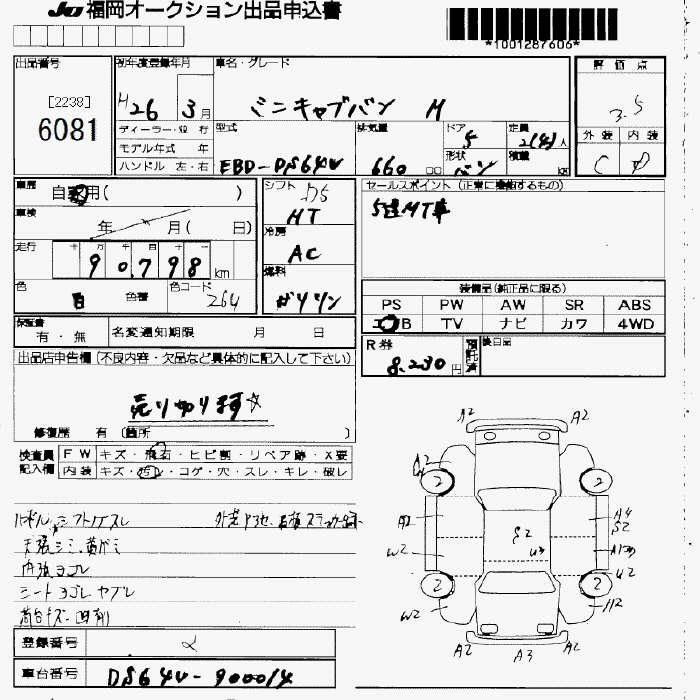 JU 福岡オークション出品申込書
*1001287606*
出品番号
[2238]
6081
初年度登録年月
H26 3月
ディーラー・並 行
モデル年式 年
ハンドル 左・右
車名・グレード
ミニキャブバン M
型式
EBD-DS64V
排気量
660 cc
ドア
5
形状
バン
定員
2(4)人
積載
kg
評 価 点
3.5
外 装 内 装
C D
車歴
自家用( )
車検
年 月( 日)
走行
十 万 千 百 十 一
9 0,7 9 8 km
色
白 色替
色コード
264
シフト
D5
MT
冷房
AC
燃料
ガソリン
セールスポイント (正常に機能するもの)
5速MT車
装備品(純正品に限る)
PS PW AW SR ABS
エアB TV ナビ カワ 4WD
R券
8,230 円
預託済
後日品
保証書
有 ・ 無
名変通知期限 月 日
出品店申告欄 (不良内容・欠品など具体的に記入して下さい)
売り切ります☆
修復歴 有 (箇所 )
検査員記入欄
FW キズ・飛石・ヒビ割・リペア跡・X要
内装 キズ・汚レ・コゲ・穴・スレ・キレ・破レ
ハンドル シフトノブスレ
天張シミ
内張ヨゴレ
シートヨゴレ ヤブレ
A2 A2
A2
2 2
A2 A4
S2
S2
W2 U3
U2
2 2
W2
A2 A3 A2
登録番号
車台番号 DS64V-900014